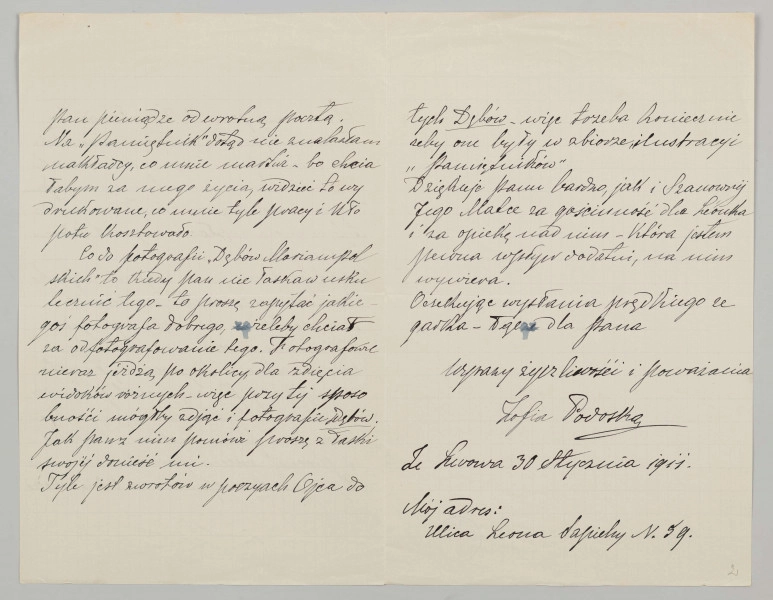 pan pieniądze odwrotną pocztą.
Na „Pamiętnik" dotąd nie znalazłam
nakładcy, co mnie martwi - bo chcia
łabym za mego życia, widzieć to wy
drukowane, co mnie tyle pracy i kło
potu kosztowało.
Co do fotografii „Dębów Mariampol
skich" to kiedy pan nie łaskaw usku
tecznić tego - to proszę zapytać jakie-
goś fotografa dobrego, wieleby chciał
za odfotografowanie tego. Fotografowie
nieraz jeżdżą po okolicy, dla zdjęcia
widoków różnych - więc przy tej sposo
bności mógłby zdjąć i fotografię Dębów.
Jak pan z nim pomówi proszę z łaski
swojéj donieść mi.
Tyle jest zwrotów w poezyach Ojca do
tych Dębów - więc trzeba koniecznie
żeby one były w zbiorze, ilustracyi
„Pamiętników"
Dziękuję panu bardzo, jak i Szanownéj
Jego Matce za gościnność dla Leonka
i za opiekę nad nim - która jestem
pewna wpływ dodatni, na nim
wywiera.
Oczekując wysłania prędkiego ze
garka - łączę dla Pana
wyrazy życzliwości i poważania
Zofia Podoska
Ze Lwowa 30 Stycznia 1911.
Mój adres:
Ulica Leona Sapiehy N. 59.
2